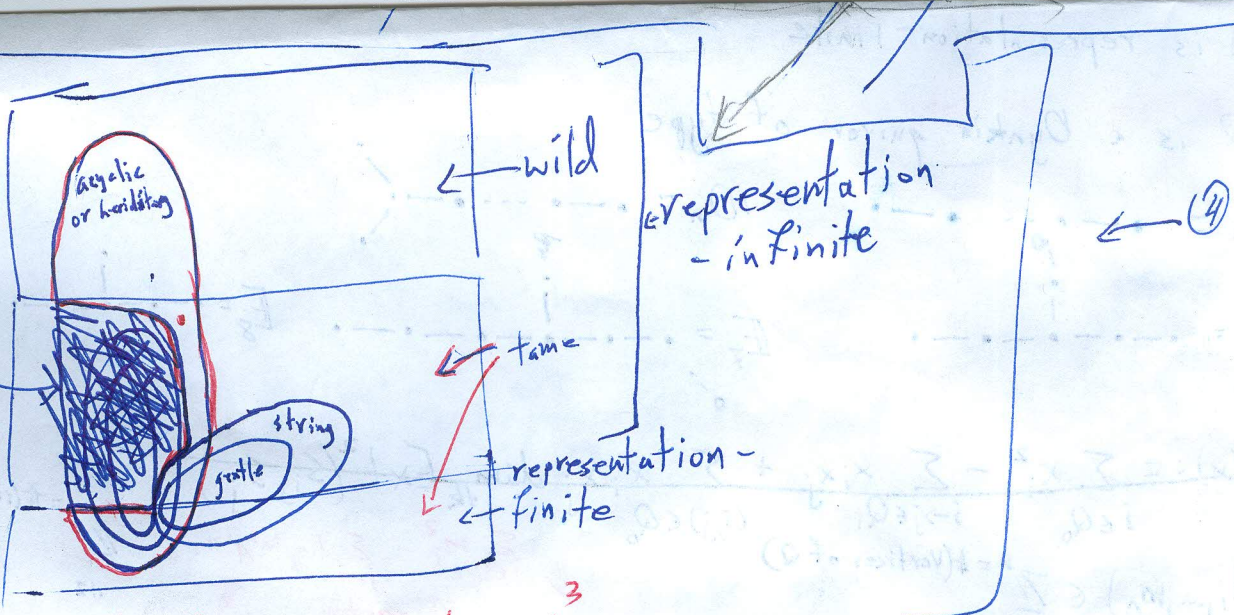 acyclic
or heriditary
wild
representation
- infinite
④
tame
string
gentle
representation -
finite
3